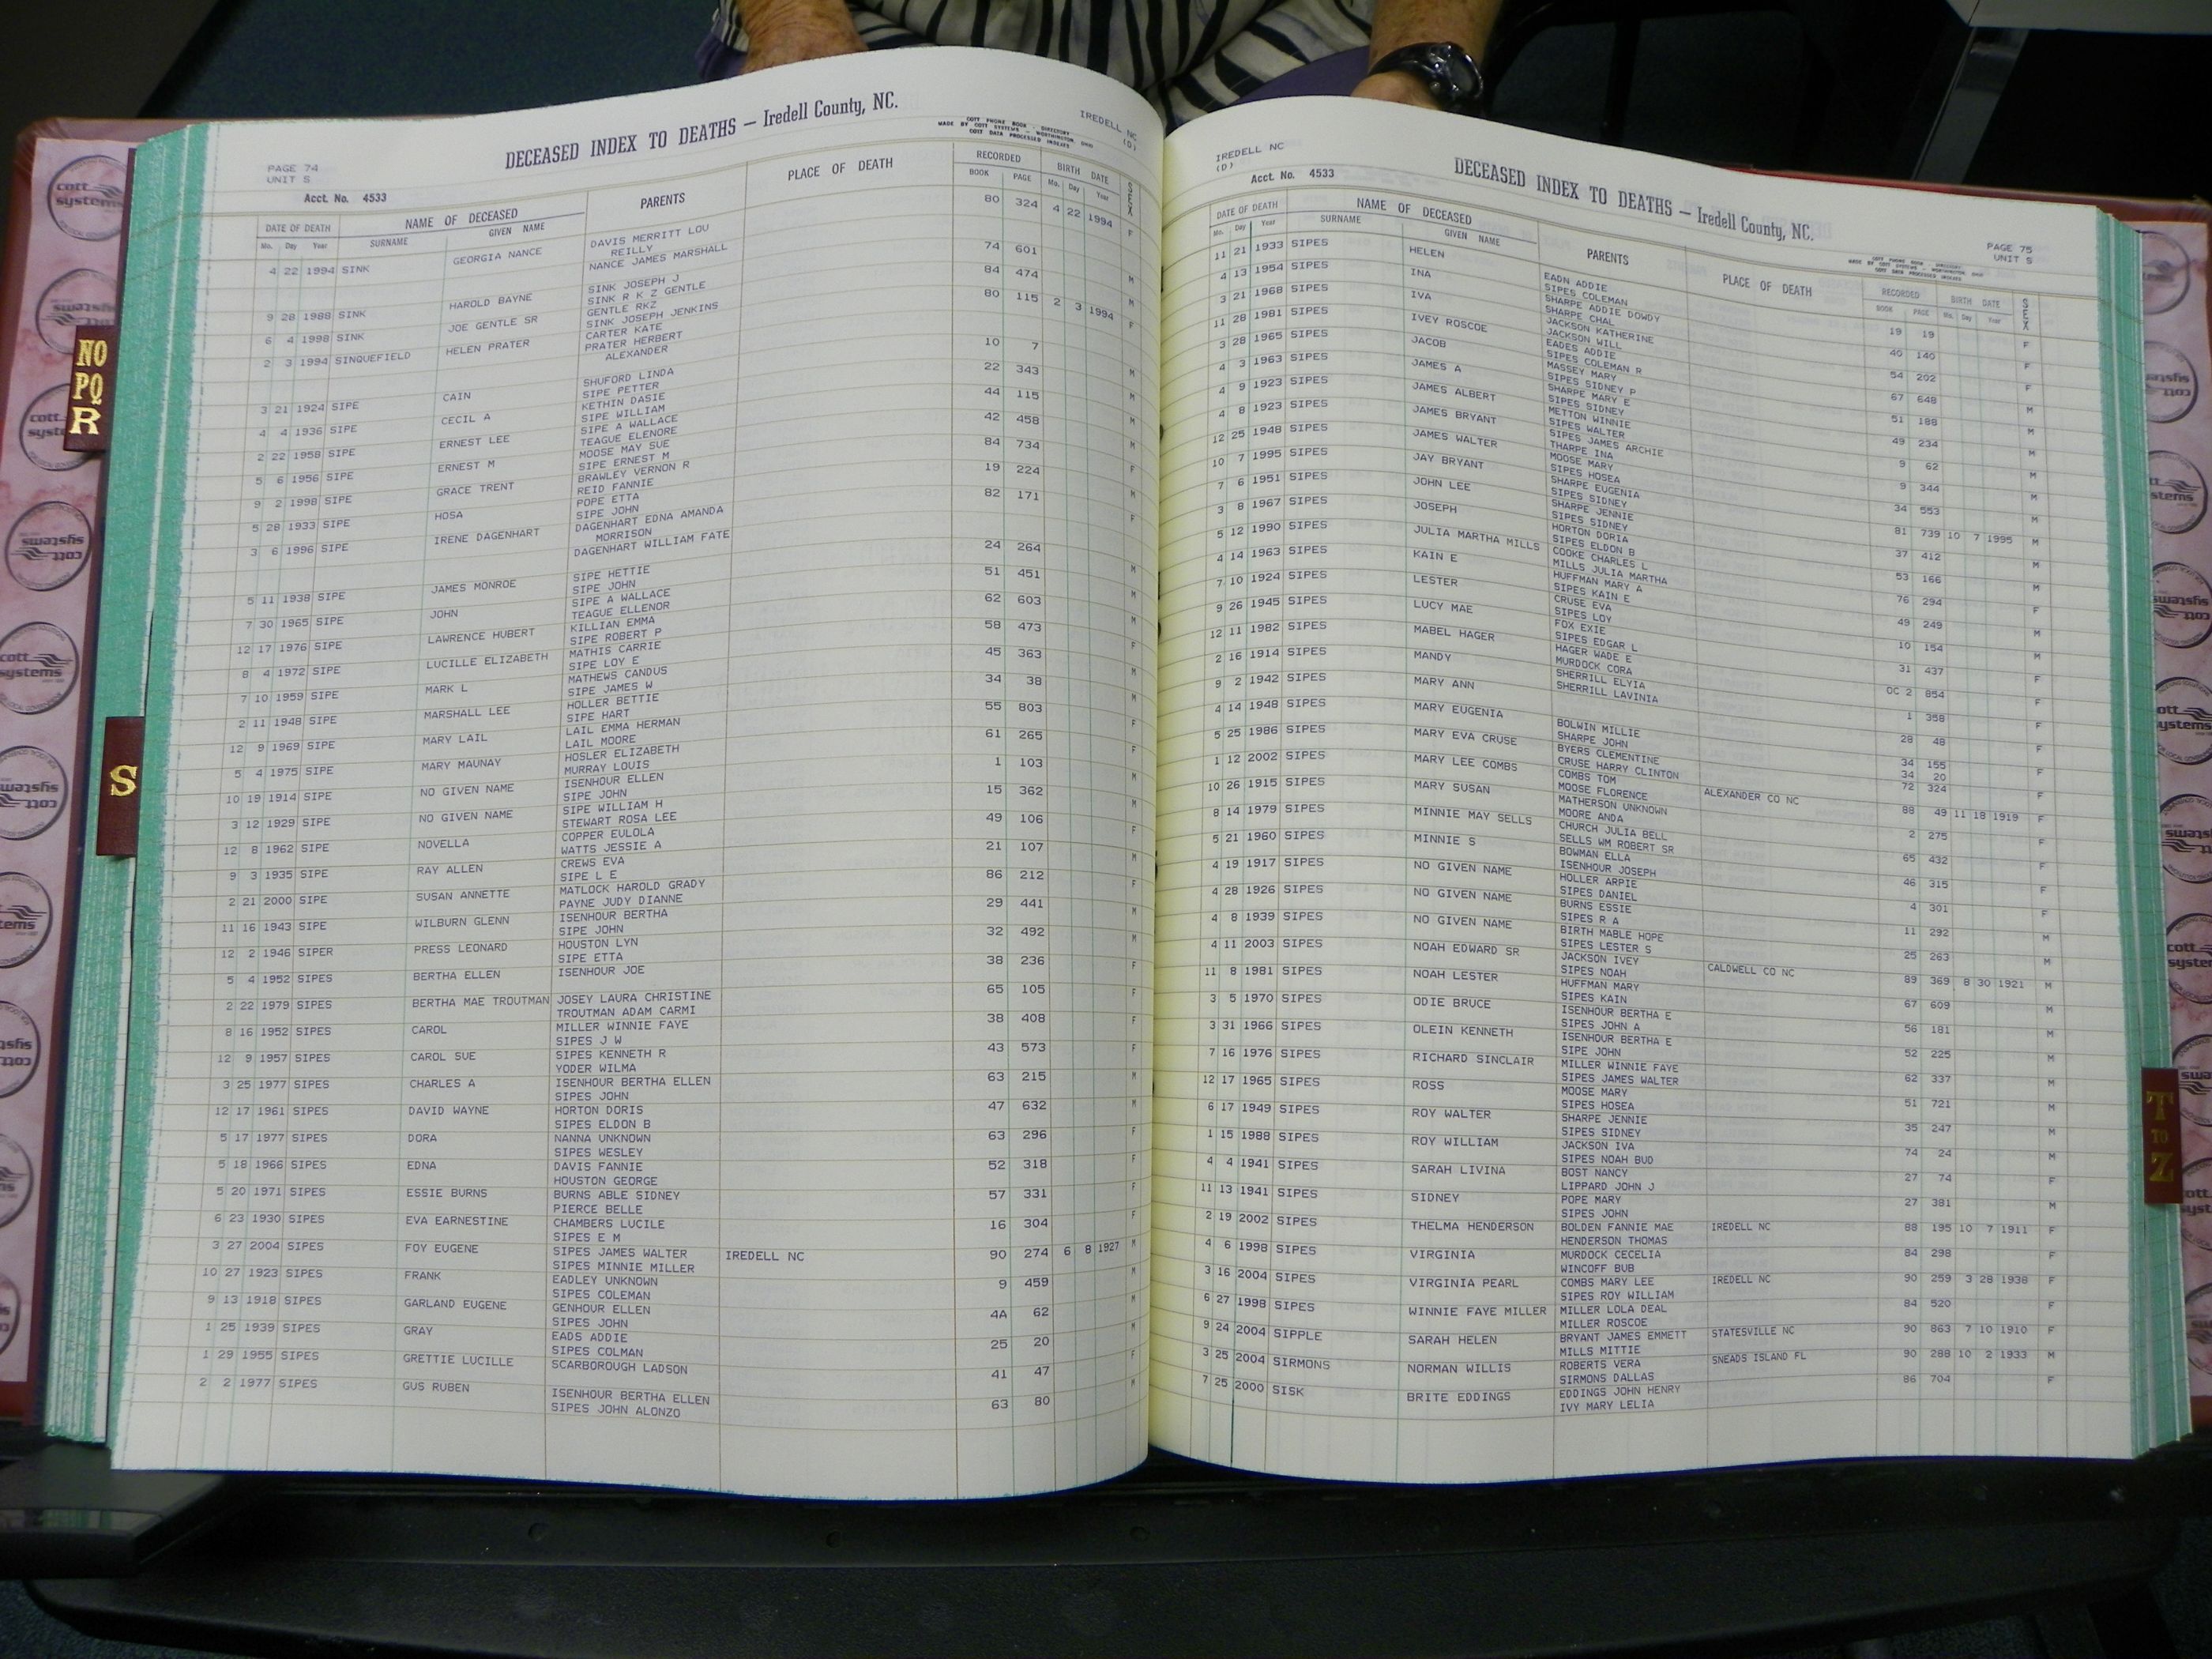 DECEASED INDEX TO DEATHS — Iredell County, NC.
COTT PHONE BOOK - DIRECTORY
MADE BY COTT SYSTEMS - WORTHINGTON, OHIO
COTT DATA PROCESSED INDEXES
IREDELL NC
(D)
PAGE 74
UNIT S
Acct. No. 4533
DATE OF DEATH NAME OF DECEASED PARENTS PLACE OF DEATH RECORDED BIRTH DATE SEX
Mo. Day Year SURNAME GIVEN NAME BOOK PAGE Mo. Day Year
4 22 1994 SINK GEORGIA NANCE DAVIS MERRITT LOU 80 324 4 22 1994 F
REILLY
NANCE JAMES MARSHALL
9 28 1988 SINK HAROLD BAYNE SINK JOSEPH J 74 601 M
SINK R K Z GENTLE
6 4 1998 SINK JOE GENTLE SR GENTLE RKZ 84 474 M
SINK JOSEPH JENKINS
2 3 1994 SINQUEFIELD HELEN PRATER CARTER KATE 80 115 2 3 1994 F
PRATER HERBERT
ALEXANDER
3 21 1924 SIPE CAIN SHUFORD LINDA 10 7 M
SIPE PETTER
4 4 1936 SIPE CECIL A KETHIN DASIE 22 343 M
SIPE WILLIAM
2 22 1958 SIPE ERNEST LEE SIPE A WALLACE 44 115 M
TEAGUE ELENORE
5 6 1956 SIPE ERNEST M MOOSE MAY SUE 42 458 M
SIPE ERNEST M
9 2 1998 SIPE GRACE TRENT BRAWLEY VERNON R 84 734 F
REID FANNIE
5 28 1933 SIPE HOSA POPE ETTA 19 224 M
SIPE JOHN
3 6 1996 SIPE IRENE DAGENHART DAGENHART EDNA AMANDA 82 171 F
MORRISON
DAGENHART WILLIAM FATE
5 11 1938 SIPE JAMES MONROE SIPE HETTIE 24 264 M
SIPE JOHN
7 30 1965 SIPE JOHN SIPE A WALLACE 51 451 M
TEAGUE ELLENOR
12 17 1976 SIPE LAWRENCE HUBERT KILLIAN EMMA 62 603 M
SIPE ROBERT P
8 4 1972 SIPE LUCILLE ELIZABETH MATHIS CARRIE 58 473 F
SIPE LOY E
7 10 1959 SIPE MARK L MATHEWS CANDUS 45 363 M
SIPE JAMES W
2 11 1948 SIPE MARSHALL LEE HOLLER BETTIE 34 38 M
SIPE HART
12 9 1969 SIPE MARY LAIL LAIL EMMA HERMAN 55 803 F
LAIL MOORE
5 4 1975 SIPE MARY MAUNAY HOSLER ELIZABETH 61 265 F
MURRAY LOUIS
10 19 1914 SIPE NO GIVEN NAME ISENHOUR ELLEN 1 103 M
SIPE JOHN
3 12 1929 SIPE NO GIVEN NAME SIPE WILLIAM H 15 362 M
STEWART ROSA LEE
12 8 1962 SIPE NOVELLA COPPER EULOLA 49 106 F
WATTS JESSIE A
9 3 1935 SIPE RAY ALLEN CREWS EVA 21 107 M
SIPE L E
2 21 2000 SIPE SUSAN ANNETTE MATLOCK HAROLD GRADY 86 212 F
PAYNE JUDY DIANNE
11 16 1943 SIPE WILBURN GLENN ISENHOUR BERTHA 29 441 M
SIPE JOHN
12 2 1946 SIPER PRESS LEONARD HOUSTON LYN 32 492 M
SIPE ETTA
5 4 1952 SIPES BERTHA ELLEN ISENHOUR JOE 38 236 F
2 22 1979 SIPES BERTHA MAE TROUTMAN JOSEY LAURA CHRISTINE 65 105 F
TROUTMAN ADAM CARMI
8 16 1952 SIPES CAROL MILLER WINNIE FAYE 38 408 F
SIPES J W
12 9 1957 SIPES CAROL SUE SIPES KENNETH R 43 573 F
YODER WILMA
3 25 1977 SIPES CHARLES A ISENHOUR BERTHA ELLEN 63 215 M
SIPES JOHN
12 17 1961 SIPES DAVID WAYNE HORTON DORIS 47 632 M
SIPES ELDON B
5 17 1977 SIPES DORA NANNA UNKNOWN 63 296 F
SIPES WESLEY
5 18 1966 SIPES EDNA DAVIS FANNIE 52 318 F
HOUSTON GEORGE
5 20 1971 SIPES ESSIE BURNS BURNS ABLE SIDNEY 57 331 F
PIERCE BELLE
6 23 1930 SIPES EVA EARNESTINE CHAMBERS LUCILE 16 304 F
SIPES E M
3 27 2004 SIPES FOY EUGENE SIPES JAMES WALTER IREDELL NC 90 274 6 8 1927 M
SIPES MINNIE MILLER
10 27 1923 SIPES FRANK EADLEY UNKNOWN 9 459 M
SIPES COLEMAN
9 13 1918 SIPES GARLAND EUGENE GENHOUR ELLEN 4A 62 M
SIPES JOHN
1 25 1939 SIPES GRAY EADS ADDIE 25 20 M
SIPES COLMAN
1 29 1955 SIPES GRETTIE LUCILLE SCARBOROUGH LADSON 41 47 F
2 2 1977 SIPES GUS RUBEN ISENHOUR BERTHA ELLEN 63 80 M
SIPES JOHN ALONZO
DECEASED INDEX TO DEATHS — Iredell County, NC.
IREDELL NC
(D)
PAGE 75
UNIT S
Acct. No. 4533
DATE OF DEATH NAME OF DECEASED PARENTS PLACE OF DEATH RECORDED BIRTH DATE SEX
Mo. Day Year SURNAME GIVEN NAME BOOK PAGE Mo. Day Year
11 21 1933 SIPES HELEN EADN ADDIE 19 19 F
SIPES COLEMAN
4 13 1954 SIPES INA SHARPE ADDIE DOWDY 40 140 F
SHARPE CHAL
3 21 1968 SIPES IVA JACKSON KATHERINE 54 202 F
JACKSON WILL
11 28 1981 SIPES IVEY ROSCOE EADES ADDIE 67 648 M
SIPES COLEMAN R
3 28 1965 SIPES JACOB MASSEY MARY 51 188 M
SIPES SIDNEY P
4 3 1963 SIPES JAMES A SHARPE MARY E 49 234 M
SIPES SIDNEY
4 9 1923 SIPES JAMES ALBERT METTON WINNIE 9 62 M
SIPES WALTER
4 8 1923 SIPES JAMES BRYANT SIPES JAMES ARCHIE 9 344 M
THARPE INA
12 25 1948 SIPES JAMES WALTER MOOSE MARY 34 553 M
SIPES HOSEA
10 7 1995 SIPES JAY BRYANT SHARPE EUGENIA 81 739 10 7 1995 M
SIPES SIDNEY
7 6 1951 SIPES JOHN LEE SHARPE JENNIE 37 412 M
SIPES SIDNEY
3 8 1967 SIPES JOSEPH HORTON DORIA 53 166 M
SIPES ELDON B
5 12 1990 SIPES JULIA MARTHA MILLS COOKE CHARLES L 76 294 F
MILLS JULIA MARTHA
4 14 1963 SIPES KAIN E HUFFMAN MARY A 49 249 M
SIPES KAIN E
7 10 1924 SIPES LESTER CRUSE EVA 10 154 M
SIPES LOY
9 26 1945 SIPES LUCY MAE FOX EXIE 31 437 F
SIPES EDGAR L
12 11 1982 SIPES MABEL HAGER HAGER WADE E OC 2 854 F
MURDOCK CORA
2 16 1914 SIPES MANDY SHERRILL ELYIA 1 358 F
SHERRILL LAVINIA
9 2 1942 SIPES MARY ANN BOLWIN MILLIE 28 48 F
SHARPE JOHN
4 14 1948 SIPES MARY EUGENIA BYERS CLEMENTINE 34 155 F
34 20
5 25 1986 SIPES MARY EVA CRUSE CRUSE HARRY CLINTON 72 324 F
1 12 2002 SIPES MARY LEE COMBS COMBS TOM ALEXANDER CO NC 88 49 11 18 1919 F
MOOSE FLORENCE
10 26 1915 SIPES MARY SUSAN MATHERSON UNKNOWN 2 275 F
MOORE ANDA
8 14 1979 SIPES MINNIE MAY SELLS CHURCH JULIA BELL 65 432 F
SELLS WM ROBERT SR
5 21 1960 SIPES MINNIE S BOWMAN ELLA 46 315 F
ISENHOUR JOSEPH
4 19 1917 SIPES NO GIVEN NAME HOLLER ARPIE 4 301 M
SIPES DANIEL
4 28 1926 SIPES NO GIVEN NAME BURNS ESSIE 11 292 M
SIPES R A
4 8 1939 SIPES NO GIVEN NAME BIRTH MABLE HOPE 25 263
SIPES LESTER S
4 11 2003 SIPES NOAH EDWARD SR JACKSON IVEY CALDWELL CO NC 89 369 8 30 1921 M
SIPES NOAH
11 8 1981 SIPES NOAH LESTER HUFFMAN MARY 67 609 M
SIPES KAIN
3 5 1970 SIPES ODIE BRUCE ISENHOUR BERTHA E 56 181 M
SIPES JOHN A
3 31 1966 SIPES OLEIN KENNETH ISENHOUR BERTHA E 52 225 M
SIPE JOHN
7 16 1976 SIPES RICHARD SINCLAIR MILLER WINNIE FAYE 62 337 M
SIPES JAMES WALTER
12 17 1965 SIPES ROSS MOOSE MARY 51 721 M
SIPES HOSEA
6 17 1949 SIPES ROY WALTER SHARPE JENNIE 35 247 M
SIPES SIDNEY
1 15 1988 SIPES ROY WILLIAM JACKSON IVA 74 24 M
SIPES NOAH BUD
4 4 1941 SIPES SARAH LIVINA BOST NANCY 27 74 F
LIPPARD JOHN J
11 13 1941 SIPES SIDNEY POPE MARY 27 381 M
SIPES JOHN
2 19 2002 SIPES THELMA HENDERSON BOLDEN FANNIE MAE IREDELL NC 88 195 10 7 1911 F
HENDERSON THOMAS
4 6 1998 SIPES VIRGINIA MURDOCK CECELIA 84 298 F
WINCOFF BUB
3 16 2004 SIPES VIRGINIA PEARL COMBS MARY LEE IREDELL NC 90 259 3 28 1938 F
SIPES ROY WILLIAM
6 27 1998 SIPES WINNIE FAYE MILLER MILLER LOLA DEAL 84 520 F
MILLER ROSCOE
9 24 2004 SIPPLE SARAH HELEN BRYANT JAMES EMMETT STATESVILLE NC 90 863 7 10 1910 F
MILLS MITTIE
3 25 2004 SIRMONS NORMAN WILLIS ROBERTS VERA SNEADS ISLAND FL 90 288 10 2 1933 M
SIRMONS DALLAS
7 25 2000 SISK BRITE EDDINGS EDDINGS JOHN HENRY 86 704 F
IVY MARY LELIA
NO
PQ
R
S
T
TO
Z
cott
systems